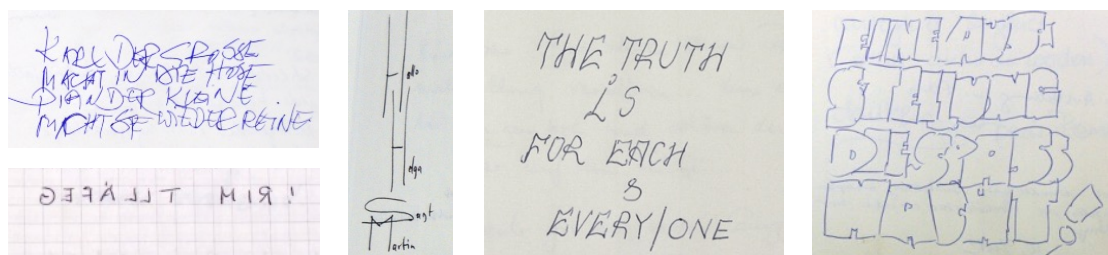 KARL DER GROSSE
MACHT IN DIE HOSE
DER KLEINE
MACHT SIE WIEDER REINE
GEFÄLLT MIR !
Hallo
Helga
Sagt
Martin
THE TRUTH
is
FOR EACH
&
EVERY/ONE
EINE AUS
STELLUNG
DIE SPASS
MACHT!